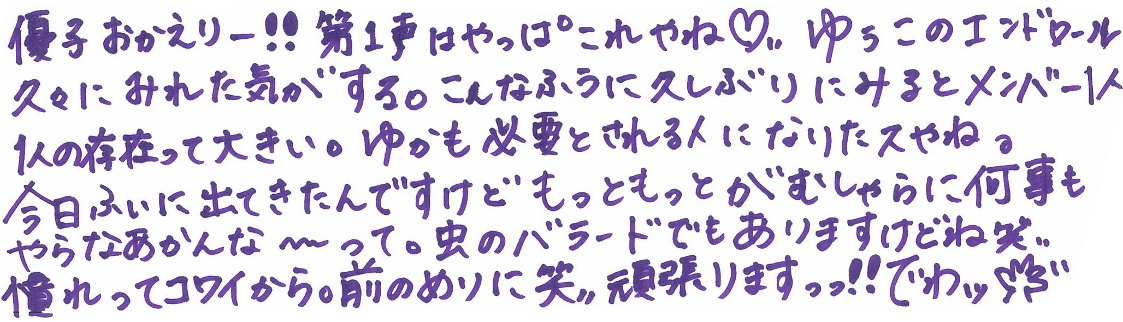 優子おかえりー!!第1声はやっぱこれやね♡,, ゆうこのエンドロール
久々にみれた気がする。こんなふうに久しぶりにみるとメンバー1人
1人の存在って大きい。ゆかも必要とされる人になりたスやね。
今日ふいに出てきたんですけどもっともっとがむしゃらに何事も
やらなあかんな〜〜って。虫のバラードでもありますけどね笑,,
憧れってコワイから。前のめりに笑,, 頑張りますっっ!!でわッッ